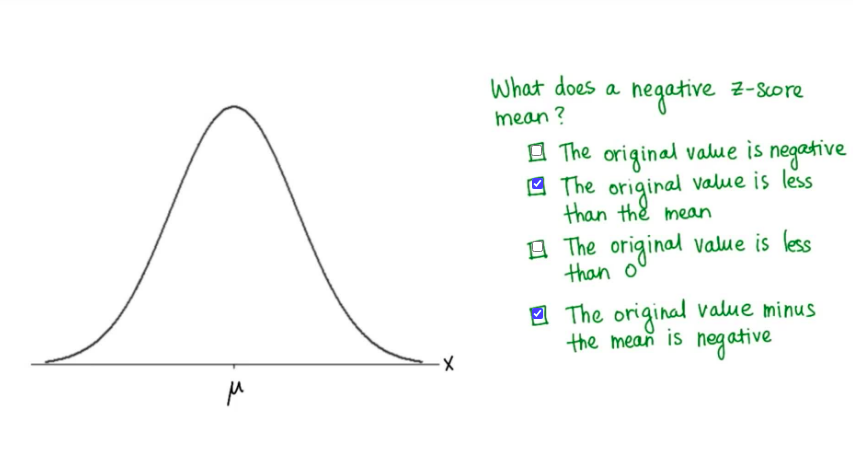 What does a negative z-score
mean?
The original value is negative
The original value is less
than the mean
The original value is less
than 0
The original value minus
the mean is negative
x
μ